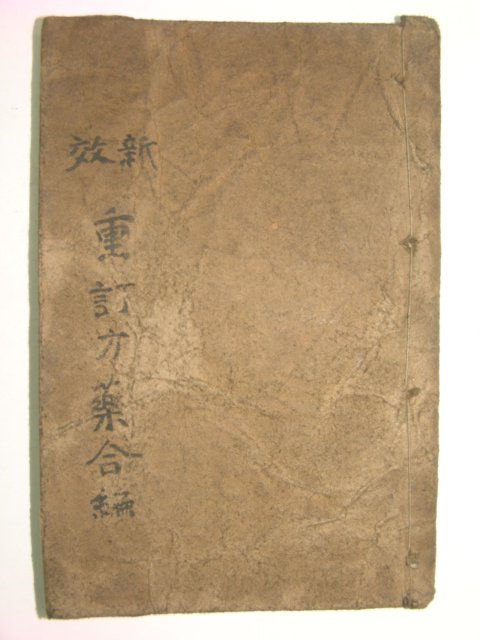 新效
重訂方藥合編